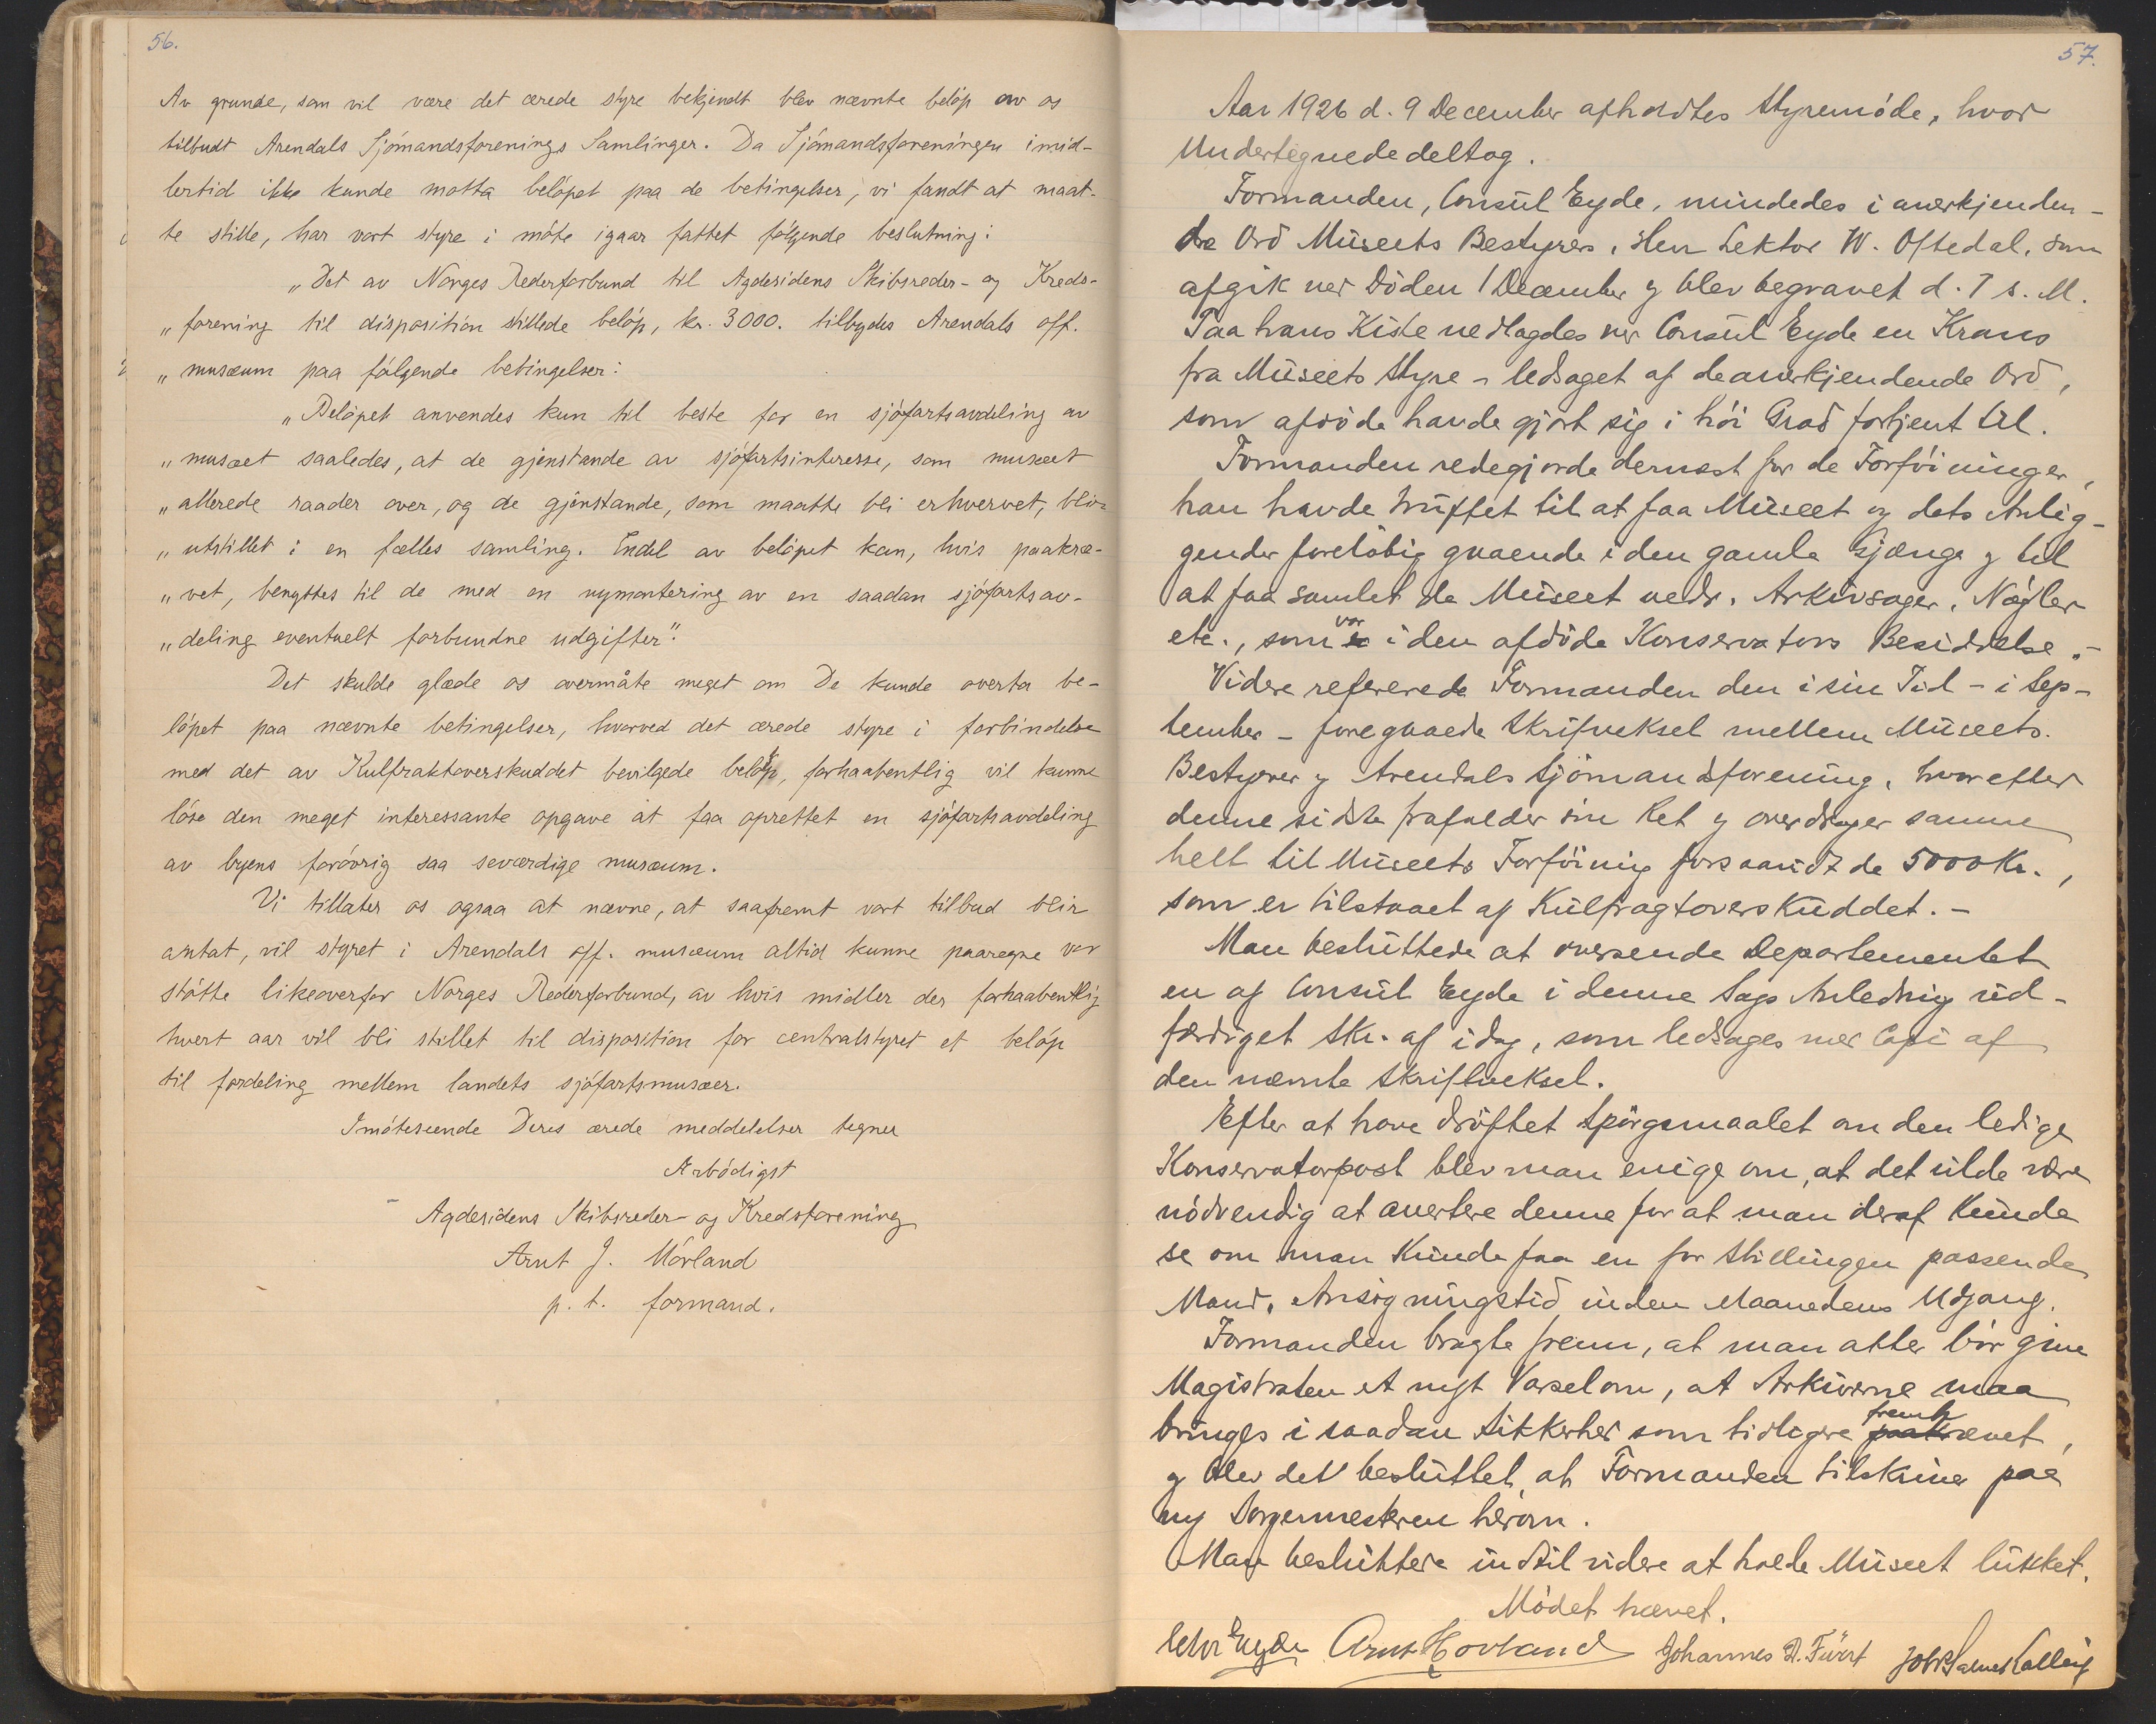 56.
Av grunde, som vil være det ærede styre bekjendt blev nævnte beløp av os
tilbudt Arendals Sjómandsforenings Samlinger. Da Sjómandsforeningen imid-
lertid ikke kunde motta belöpet paa de betingelser, vi fandt at maat-
te stille, har vort styre i möte igaar fattet fölgende beslutning:
"Det av Norges Rederforbund til Agdesidens Skibsreder- og Kreds-
"forening til disposition stillede belöp, kr. 3000. tilbydes Arendals off.
"musæum paa fölgende betingelser:
"Belöpet anvendes kun til beste for en sjöfartsavdeling av
"musæet saaledes, at de gjenstande av sjöfartsinteresse, som museet
"allerede raader over, og de gjenstande, som maatte bli erhvervet, blir
"utstillet i en fælles samling. Endel av belöpet kan, hvis paakræ-
"vet, benyttes til de med en nymontering av en saadan sjöfartsav-
"deling eventuelt forbundne udgifter".
Det skulde glæde os overmåte meget om De kunde overta be-
löpet paa nævnte betingelser, hvorved det ærede styre i forbindelse
med det av Kulfraktoverskuddet bevilgede belöp, forhaabentlig vil kunne
löse den meget interessante opgave at faa oprettet en sjöfartsavdeling
av byens forövrig saa seværdige musæum.
Vi tillater os ogsaa at nævne, at saafremt vort tilbud blir
antat, vil styret i Arendals off. musæum altid kunne paaregne vor
stötte likeoverfor Norges Rederforbund, av hvis midler der forhaabentlig
hvert aar vil bli stillet til disposition for centralstyret et belöp
til fordeling mellem landets sjöfartsmusæer.
Imöteseende Deres ærede meddelelser tegner
Ærbödigst
Agdesidens Skibsreder- og Kredsforening
Arnt J. Mörland
p. t. formand.
57.
Aar 1926 d. 9 December afholdtes Styremöde, hvor
Undertegnede deltog.
Formanden, Consul Eyde, mindedes i anerkjenden-
de Ord Museets Bestyrer, Herr Lektor W. Oftedal, som
afgik ved Döden 1 December og blev begravet d. 7 s. M.
Paa hans Kiste nedlagdes ved Consul Eyde en Krans
fra Museets Styre - ledsaget af de anerkjendende Ord,
som afdöde havde gjort sig i höi Grad fortjent til.
Formanden redegjorde dernæst for de Forföininger,
han havde truffet til at faa Museet og dets Anlig-
gender forelöbig gaaende i den gamle Gjænge og til
at faa samlet de Museet vedr. Arkivsager, Nögler
etc., som var i den afdöde Konservators Besiddelse. -
Videre refererede Formanden den i sin Tid - i Sep-
tember - foregaaede Skriftveksel mellem Museets
Bestyrer og Arendals Sjömandsforening, hvorefter
denne sidste frafalder sin Ret og overdrager samme
helt til Museets Forföining forsaavidt de 5000 Kr.,
som er tilstaaet af Kulfragtoverskuddet. -
Man besluttede at oversende Departementet
en af Consul Eyde i denne Sags Anledning ud-
færdiget Skr. af idag, som ledsages med Copi af
den nævnte Skriftveksel.
Efter at have dröftet Spörgsmaalet om den ledige
Konservatorpost blev man enige om, at det vilde være
nödvendig at avertere denne for at man deraf kunde
se om man kunde faa en for Stillingen passende
Mand. Ansögningstid inden Maanedens Udgang.
Formanden bragte frem, at man atter bör give
Magistraten et nyt Varsel om, at Arkiverne maa
bringes i saadan Sikkerhed som tidligere fremhævet,
og blev det besluttet, at Formanden tilskriver paa
ny Borgermesteren herom.
Man besluttede indtil videre at holde Museet lukket.
Mödet hævet.
Eyde Arnt Mörland Johannes A. Fürst